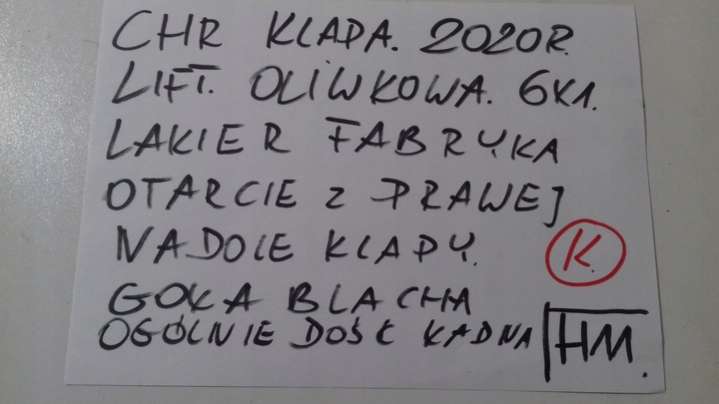 CHR KLAPA. 2020R.
LIFT. OLIWKOWA. 6X1.
LAKIER FABRYKA
OTARCIE Z PRAWEJ
NA DOLE KLAPY.
K.
GOŁA BLACHA
OGÓLNIE DOŚĆ ŁADNA
HM.